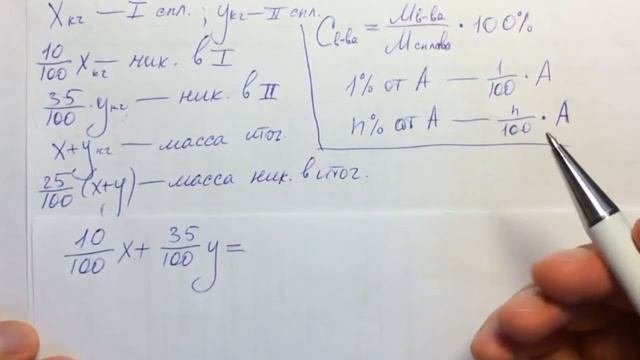 Xкг — I спл.; yкг — II спл.
10/100 Xкг — ник. в I
35/100 · yкг — ник. в II
x+yкг — масса итог.
25/100 (x+y) — масса ник. в итог.
Cв-ва = Mв-ва/Mсплава · 100%
1% от A — 1/100 · A
n% от A — n/100 · A
10/100 x + 35/100 y =